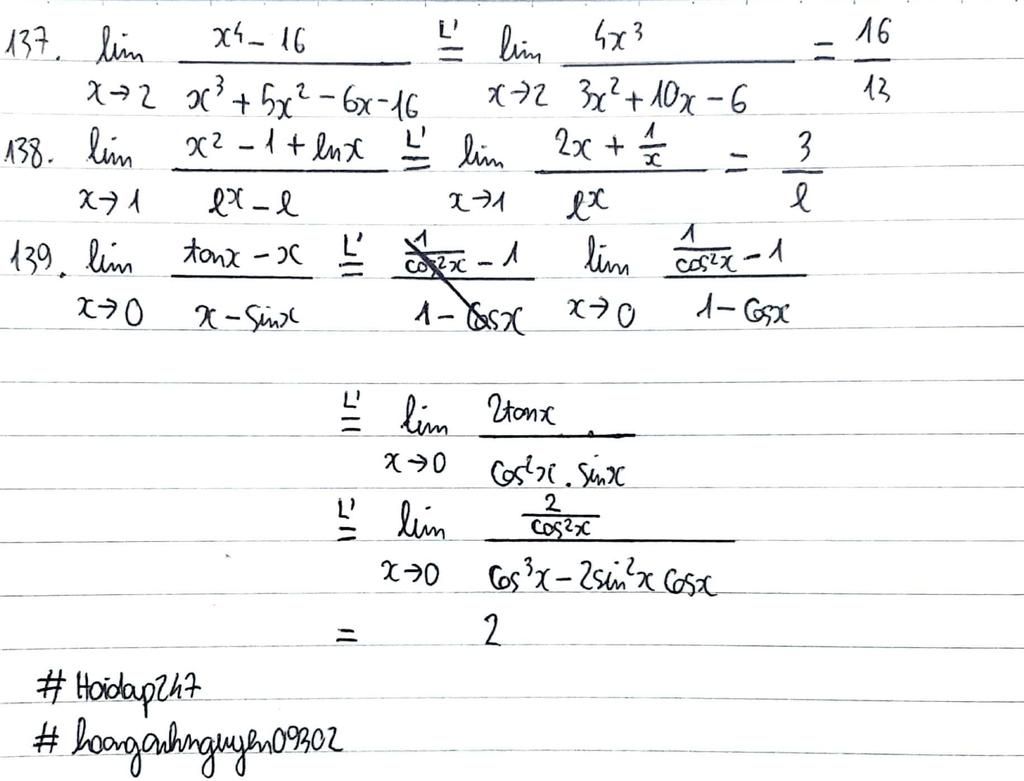 137. lim x→2 (x⁴ - 16)/(x³ + 5x² - 6x - 16) L'= lim x→2 4x³/(3x² + 10x - 6) = 16/13
138. lim x→1 (x² - 1 + lnx)/(eˣ - e) L'= lim x→1 (2x + 1/x)/eˣ = 3/e
139. lim x→0 (tanx - x)/(x - sinx) L'= (1/cos²x - 1)/(1 - cosx) lim x→0 (1/cos²x - 1)/(1 - cosx)
L'= lim x→0 2tanx/(cos²x . sinx)
L'= lim x→0 (2/cos²x)/(cos³x - 2sin²x cosx)
= 2
# Hoidap247
# hoanganhnguyen09302